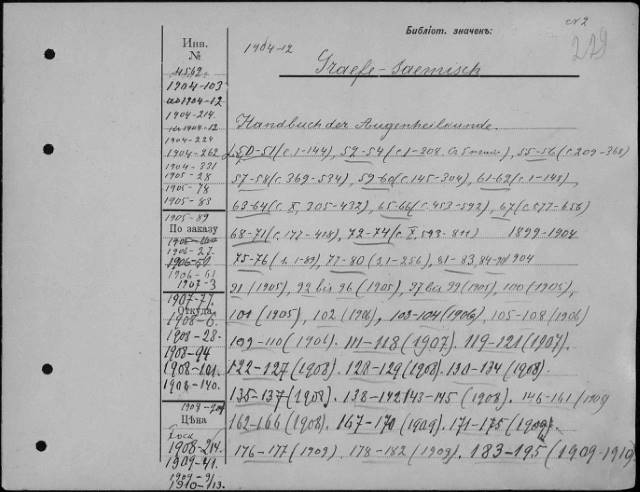 № 2
Библіот. значекъ:
229
Инв.
№
1904-12
Graefe-Saemisch
4562
1904-103
1904-12
1904-214
1904-12
1904-224
1904-262
1904-331
1905-28
1905-78
1905-83
1905-89
По заказу
1906-27
1906-51
1906-61
1907-3
1907-77
Откуда
1908-6
1908-28
1908-94
1908-101
1908-140
Цѣна
1908-214
1909-41
1910-113
Handbuch der Augenheilkunde.
50-51 (с. 1-144), 52-54 (с. 1-208), 55-56 (с. 209-368)
57-58 (с. 369-534), 59-60 (с. 145-304), 61-62 (с. 1-148),
63-64 (с. X, 305-432), 65-66 (с. 453-592), 67 (с. 577-656)
68-71 (с. 177-408), 72-74 (с. X, 593-811) 1899-1904
75-76 (1-89), 77-80 (1-256), 81-83, 84-90 1904
91 (1905), 92 bis 96 (1905), 97 bis 99 (1905), 100 (1905),
101 (1905), 102 (1906), 103-104 (1906), 105-108 (1906)
109-110 (1906). 111-118 (1907). 119-121 (1907).
122-127 (1908). 128-129 (1908). 130-134 (1908).
135-137 (1908). 138-142 143-145 (1908). 146-161 (1909)
162-166 (1908). 167-170 (1909). 171-175 (1909).
176-177 (1909). 178-182 (1909). 183-195 (1909-1910)